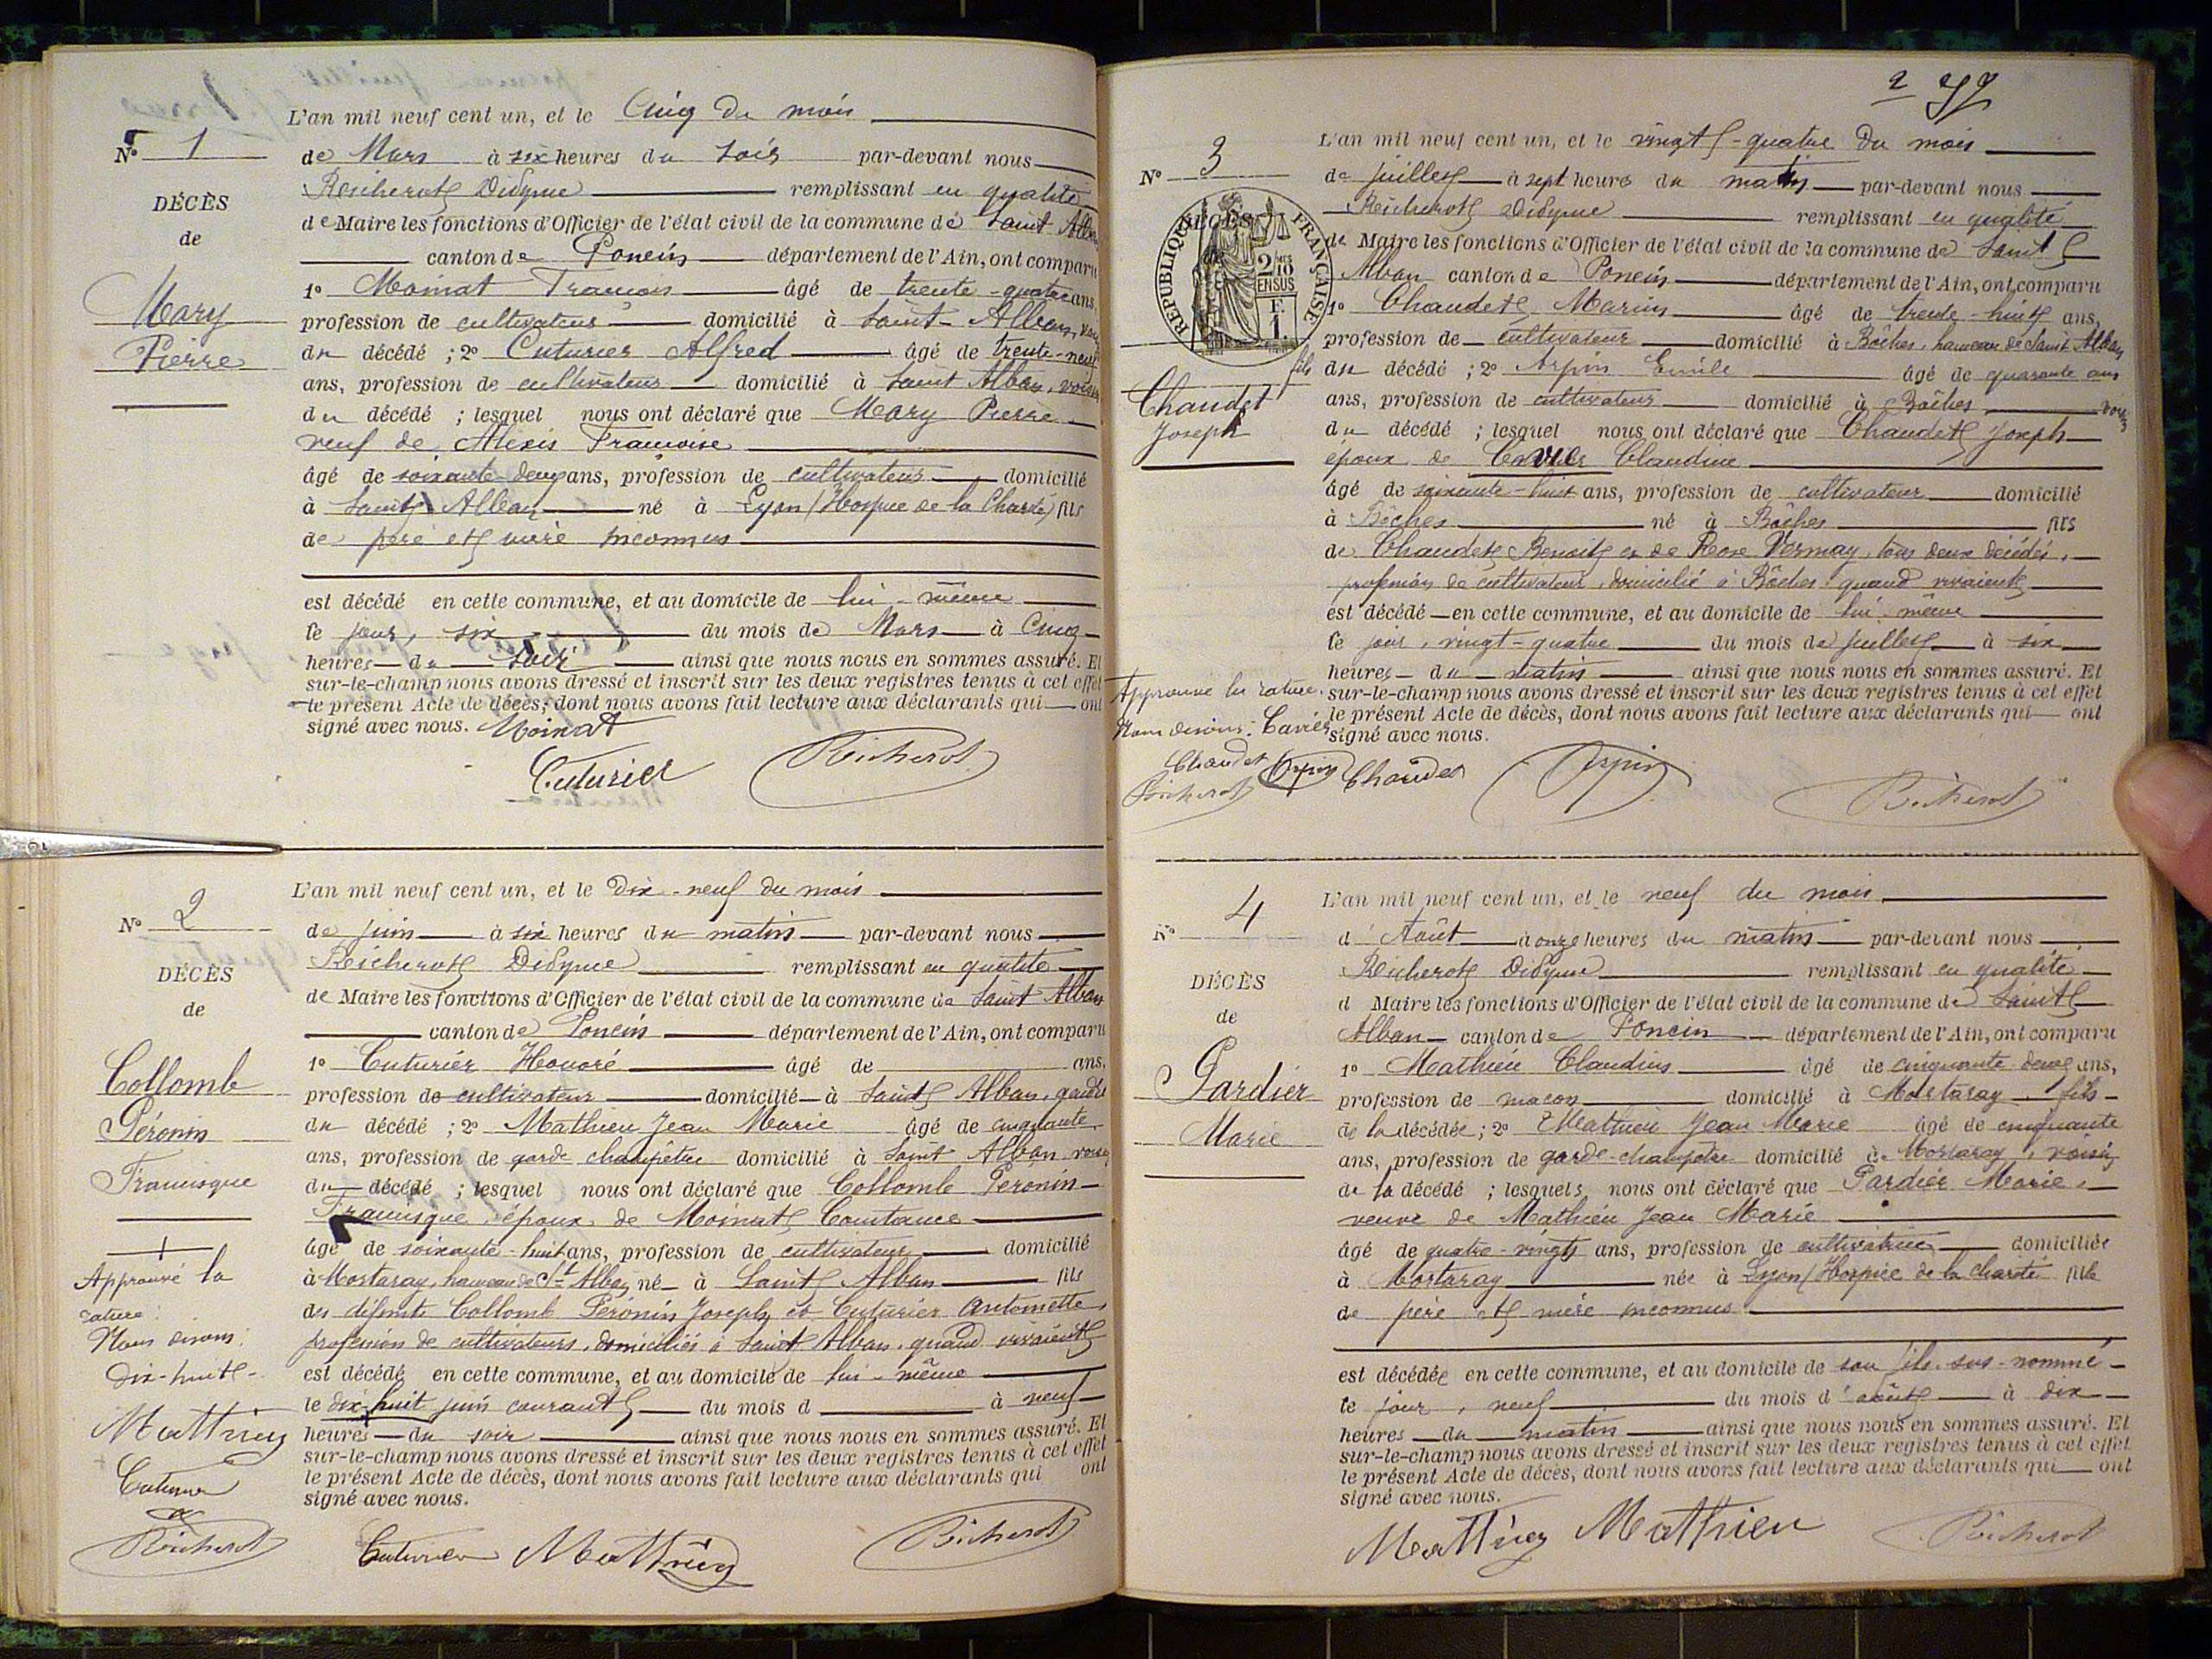 L'an mil neuf cent un, et le Cinq du mois
N° 1
de Mars à six heures du soir par-devant nous
Reicherot Didyme remplissant en qualité
DÉCÈS
de Maire les fonctions d'Officier de l'état civil de la commune de Saint Alban
de
canton de Poncin département de l'Ain, ont comparu
1° Moinat François âgé de trente-quatre ans,
Mary
profession de cultivateur domicilié à Saint-Alban,
Pierre
du décédé ; 2° Cuturier Alfred âgé de trente-neuf
ans, profession de cultivateur domicilié à Saint Alban, voisin
du décédé ; lesquel nous ont déclaré que Mary Pierre
veuf de Alexis Françoise
âgé de soixante-deux ans, profession de cultivateur domicilié
à Saint Alban né à Lyon (Hospice de la Charité) fils
de père et mère inconnus
est décédé en cette commune, et au domicile de lui-même
le jour, six du mois de Mars à Cinq
heures du soir ainsi que nous nous en sommes assuré. Et
sur-le-champ nous avons dressé et inscrit sur les deux registres tenus à cet effet
le présent Acte de décès, dont nous avons fait lecture aux déclarants qui ont
signé avec nous. Moinat
Cuturier Reicherot
L'an mil neuf cent un, et le Dix-neuf du mois
N° 2
de juin à six heures du matin par-devant nous
Reicherot Didyme remplissant en qualité
DÉCÈS
de Maire les fonctions d'Officier de l'état civil de la commune de Saint Alban
de
canton de Poncin département de l'Ain, ont comparu
1° Cuturier Honoré âgé de ans,
Collomb
profession de cultivateur domicilié à Saint Alban, gendre
Péronin
du décédé ; 2° Mathieu Jean Marie âgé de cinquante
ans, profession de garde champêtre domicilié à Saint Alban voisin
Francisque
du décédé ; lesquel nous ont déclaré que Collomb Peronin
Francisque, époux de Moinat Constance
âgé de soixante-huit ans, profession de cultivateur domicilié
Approuvé la
à Mortaray, hameau de St Alban né à Saint Alban fils
rature :
des défunts Collomb Péronin Joseph et Cuturier Antoinette,
Nous disons :
profession de cultivateurs, domiciliés à Saint Alban, quand vivaient
dix-huit
est décédé en cette commune, et au domicile de lui-même
le dix-huit juin courant du mois d à neuf
Mathieu
heures du soir ainsi que nous nous en sommes assuré. Et
sur-le-champ nous avons dressé et inscrit sur les deux registres tenus à cet effet
Cuturier
le présent Acte de décès, dont nous avons fait lecture aux déclarants qui ont
signé avec nous.
Reicherot
Cuturier Mathieu Reicherot
2
L'an mil neuf cent un, et le vingt-quatre du mois
N° 3
de juillet à sept heures du matin par-devant nous
Reicherot Didyme remplissant en qualité
DÉCÈS
de
RÉPUBLIQUE FRANÇAISE
2/10 EN SUS
F. 1.
de Maire les fonctions d'Officier de l'état civil de la commune de Saint
Alban canton de Poncin département de l'Ain, ont comparu
1° Chaudet Marius âgé de trente-huit ans,
profession de cultivateur domicilié à Bôches, hameau de Saint Alban
fils du décédé ; 2° Arpin Emile âgé de quarante ans
Chaudet
Joseph
ans, profession de cultivateur domicilié à Bôches voisin
du décédé ; lesquel nous ont déclaré que Chaudet Joseph
époux de Claudine
âgé de soixante-huit ans, profession de cultivateur domicilié
à Bôches né à Bôches fils
de Chaudet Benoit et de Rose Vermay, tous deux décédés,
profession de cultivateur, domicilié à Bôches, quand vivaient
est décédé en cette commune, et au domicile de lui-même
le jour, vingt-quatre du mois de juillet à six
heures du matin ainsi que nous nous en sommes assuré. Et
Approuvé la rature.
sur-le-champ nous avons dressé et inscrit sur les deux registres tenus à cet effet
Nous disons : Carrier
le présent Acte de décès, dont nous avons fait lecture aux déclarants qui ont
signé avec nous.
Chaudet Arpin
Reicherot
Chaudet Arpin Reicherot
L'an mil neuf cent un, et le neuf du mois
N° 4
d'Août à onze heures du matin par-devant nous
Reicherot Didyme remplissant en qualité
DÉCÈS
d Maire les fonctions d'Officier de l'état civil de la commune de Saint
de
Alban canton de Poncin département de l'Ain, ont comparu
1° Mathieu Claudius âgé de cinquante deux ans,
Pardier
profession de maçon domicilié à Mortaray, fils
Marie
de la décédée ; 2° Mathieu Jean Marie âgé de cinquante
ans, profession de garde-champêtre domicilié à Mortaray, voisin
de la décédé ; lesquels nous ont déclaré que Pardier Marie,
veuve de Mathieu Jean Marie
âgé de quatre-vingts ans, profession de cultivatrice domiciliée
à Mortaray née à Lyon (Hospice de la charité fille
de père et mère inconnus
est décédée en cette commune, et au domicile de son fils sus-nommé
le jour, neuf du mois d'août à dix
heures du matin ainsi que nous nous en sommes assuré. Et
sur-le-champ nous avons dressé et inscrit sur les deux registres tenus à cet effet
le présent Acte de décès, dont nous avons fait lecture aux déclarants qui ont
signé avec nous.
Mathieu Mathieu Reicherot